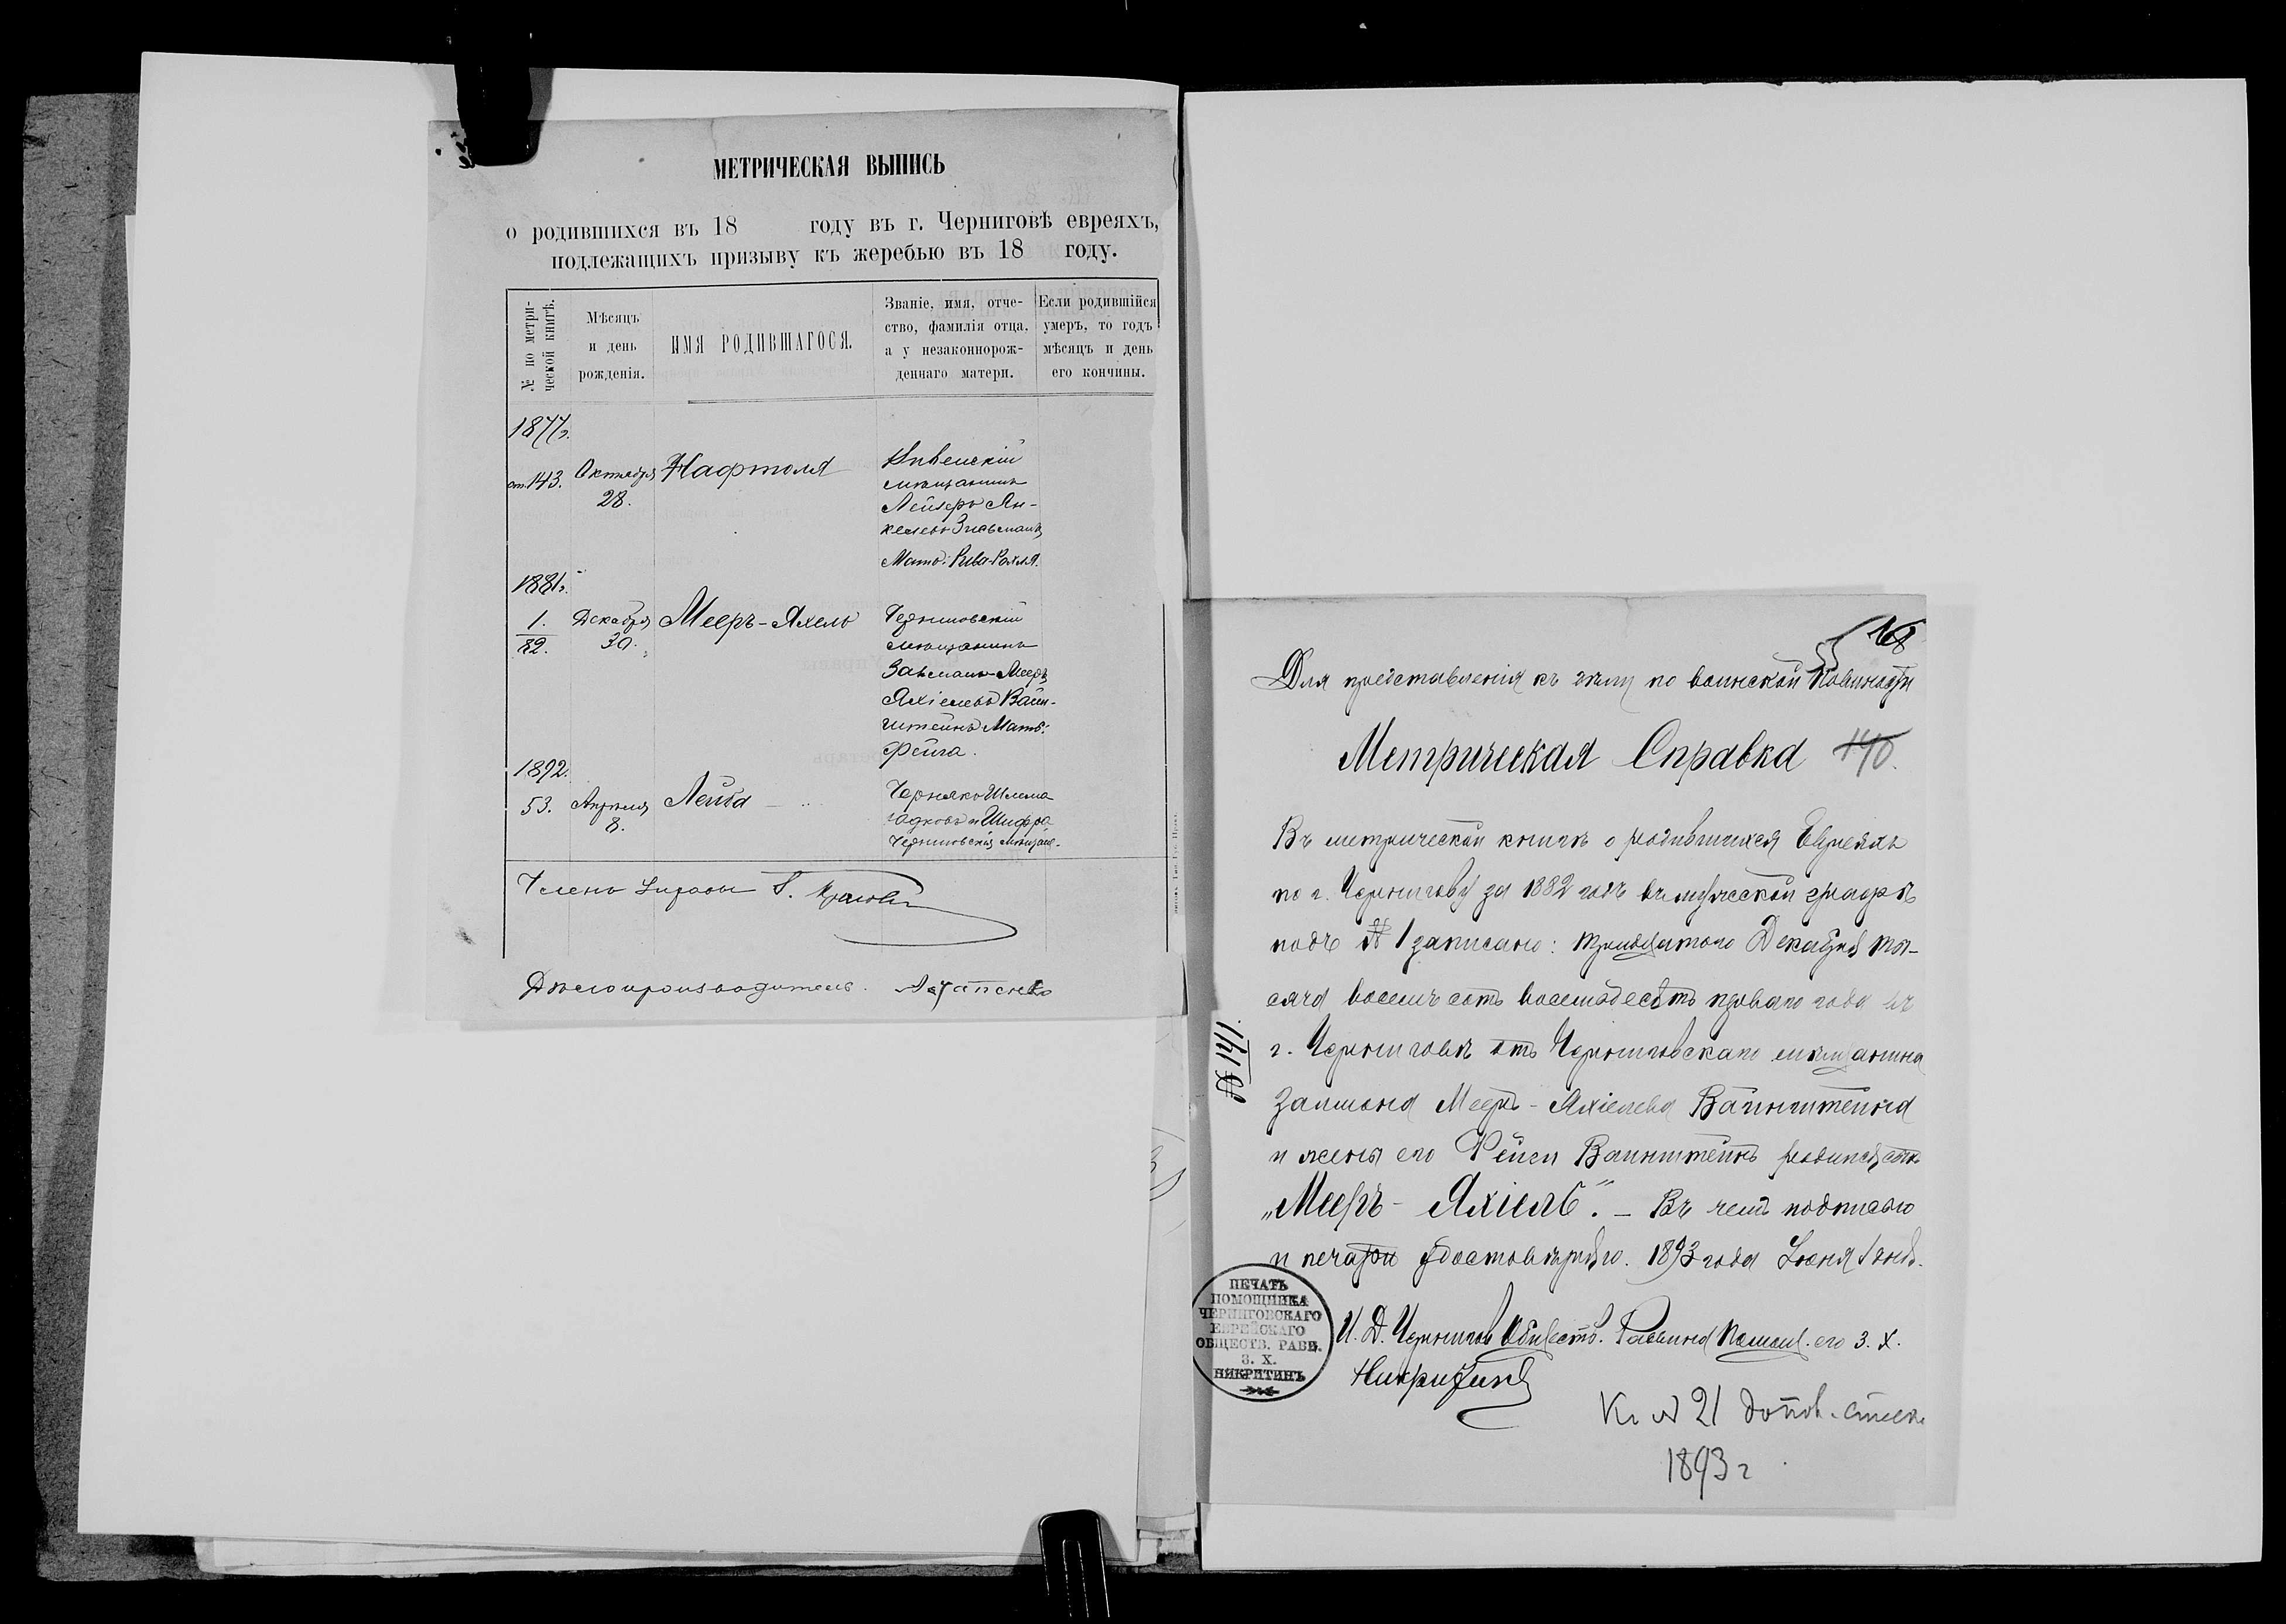 МЕТРИЧЕСКАЯ ВЫПИСЬ
о родившихся въ 18 году въ г. Черниговѣ евреяхъ,
подлежащихъ призыву къ жеребью въ 18 году.
№ по метри-
ческой книгѣ.
Мѣсяцъ
и день
рожденія.
ИМЯ РОДИВШАГОСЯ.
Званіе, имя, отче-
ство, фамилія отца,
а у незаконнорож-
деннаго матери.
Если родившійся
умеръ, то годъ
мѣсяцъ и день
его кончины.
1877г.
ст. 143.
Октября
28.
Нафтоля
мѣщанинъ
Лейзеръ Ян-
келевъ Зисьманъ
Мать: Рива-Рахля.
1881г.
1.
82.
Декабря
30.
Мееръ-Яхель
Черниговскій
мѣщанинъ
Залманъ Мееръ
Яхіелевъ Вайн-
штейнъ Мать:
Фейга.
1892.
53.
Апрѣля
8.
Лейба
Чернякъ Шлема
и Шифра
Черниговскій мѣщан-
Членъ Управы
Дѣлопроизводитель.
168
Для представленія къ дѣлу по воинской повинности
Метрическая Справка 140.
Въ метрической книгѣ о родившихся Евреяхъ
по г. Чернигову за 1882 годъ въ мужеской графѣ
подъ № 1 записано: тридцатаго Декабря ты-
сяча восемь сотъ восемьдесятъ перваго года въ
г. Черниговѣ отъ Черниговскаго мѣщанина
Залмана Мееръ-Яхіелева Вайнштейна
и жены его Фейги Вайнштейнъ родился сынъ
„Мееръ-Яхіель“. — Въ чемъ подписью
и печатью удостовѣряю. 1893 года Іюня 1 дня.
№ 141.
ПЕЧАТЬ
ПОМОЩНИКА
ЧЕРНИГОВСКАГО
ЕВРЕЙСКАГО
ОБЩЕСТВ. РАВВ.
З. Х.
НИКРИТИНЪ
И. Д. Чернигов Обществ. Раввина Помощ. его З. Х.
Никритинъ
Къ № 21 
1893 г